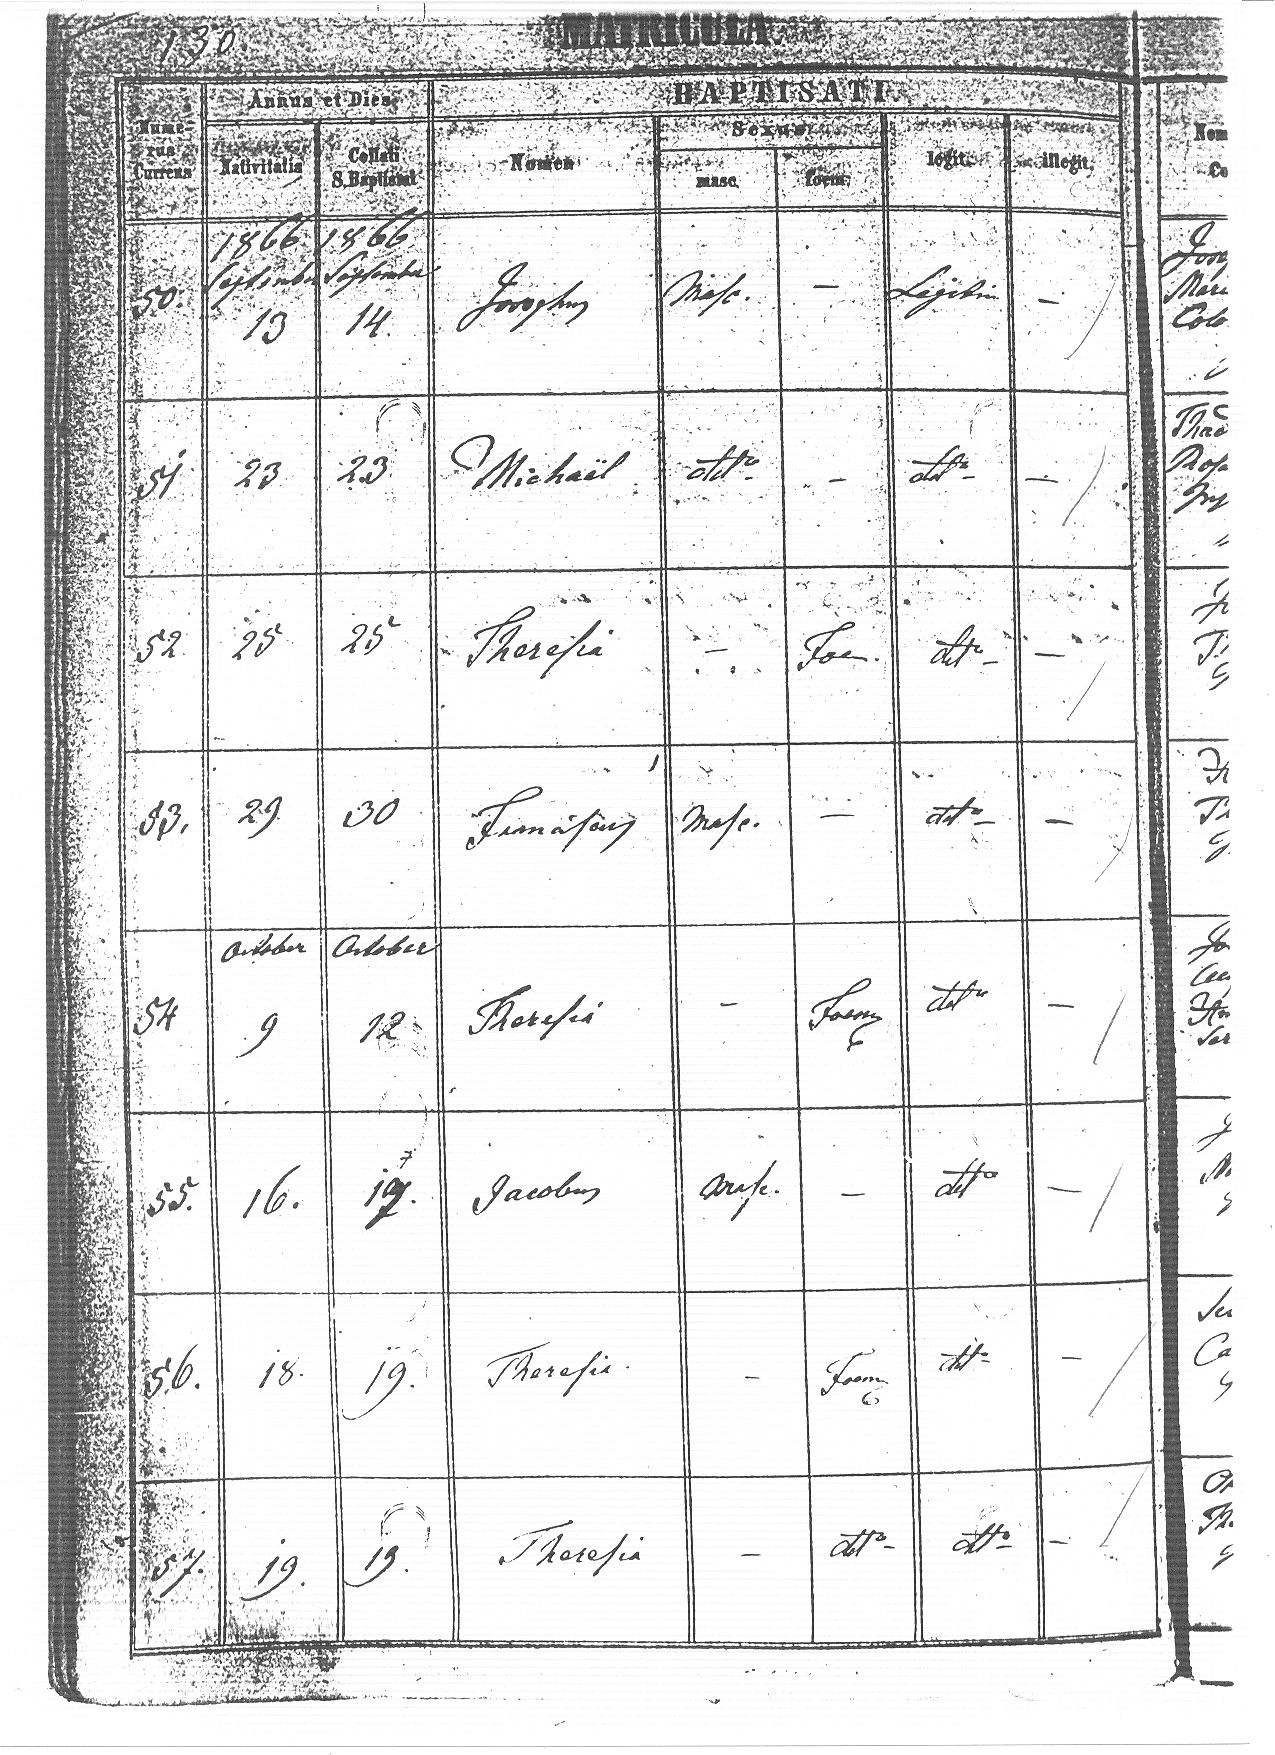 130.
MATRICULA
Nume-
rus
Currens
Annus et Dies
Nativitatis
Collati
S. Baptismi
BAPTISATI
Nomen
Sexus
masc.
foem.
legit.
illegit.
Nom
Co
50.
1866
September
13
1866
September
14.
Josephus
Masc.
—
Legitim
—
51
23
23
Michaël
detto
—
detto
—
52
25
25
Theresia
—
Foe.
detto
—
53.
29
30
Franciscus
Masc.
—
detto
—
54
October
9
October
12
Theresia
—
Foem
detto
—
55.
16.
17.
Jacobus
Masc.
—
detto
—
56.
18.
19.
Theresia.
—
Foem
detto
—
57.
19.
19.
Theresia
—
detto
detto
—